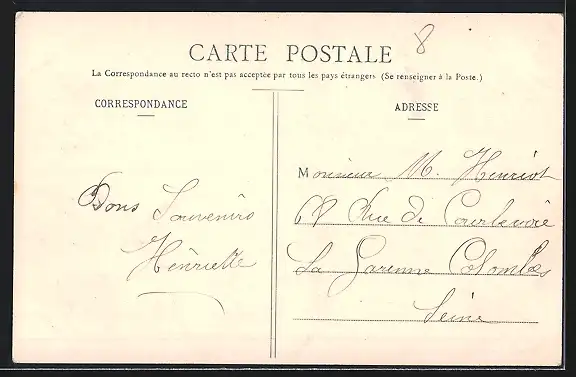 8
CARTE POSTALE
La Correspondance au recto n'est pas acceptée par tous les pays étrangers (Se renseigner à la Poste.)
CORRESPONDANCE
Bons Souvenirs
Henriette
ADRESSE
Monsieur M. Henriot
68 Rue de Courbevoie
La Garenne Colombes
Seine